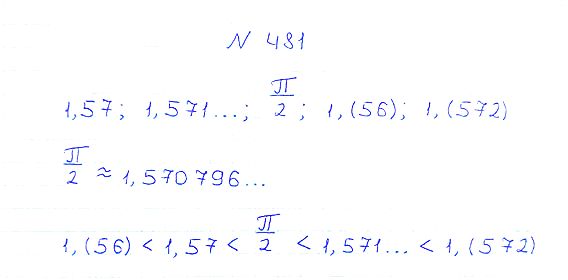 N 481
1,57; 1,571...; П/2; 1,(56); 1,(572)
П/2 ≈ 1,570796...
1,(56) < 1,57 < П/2 < 1,571... < 1,(572)